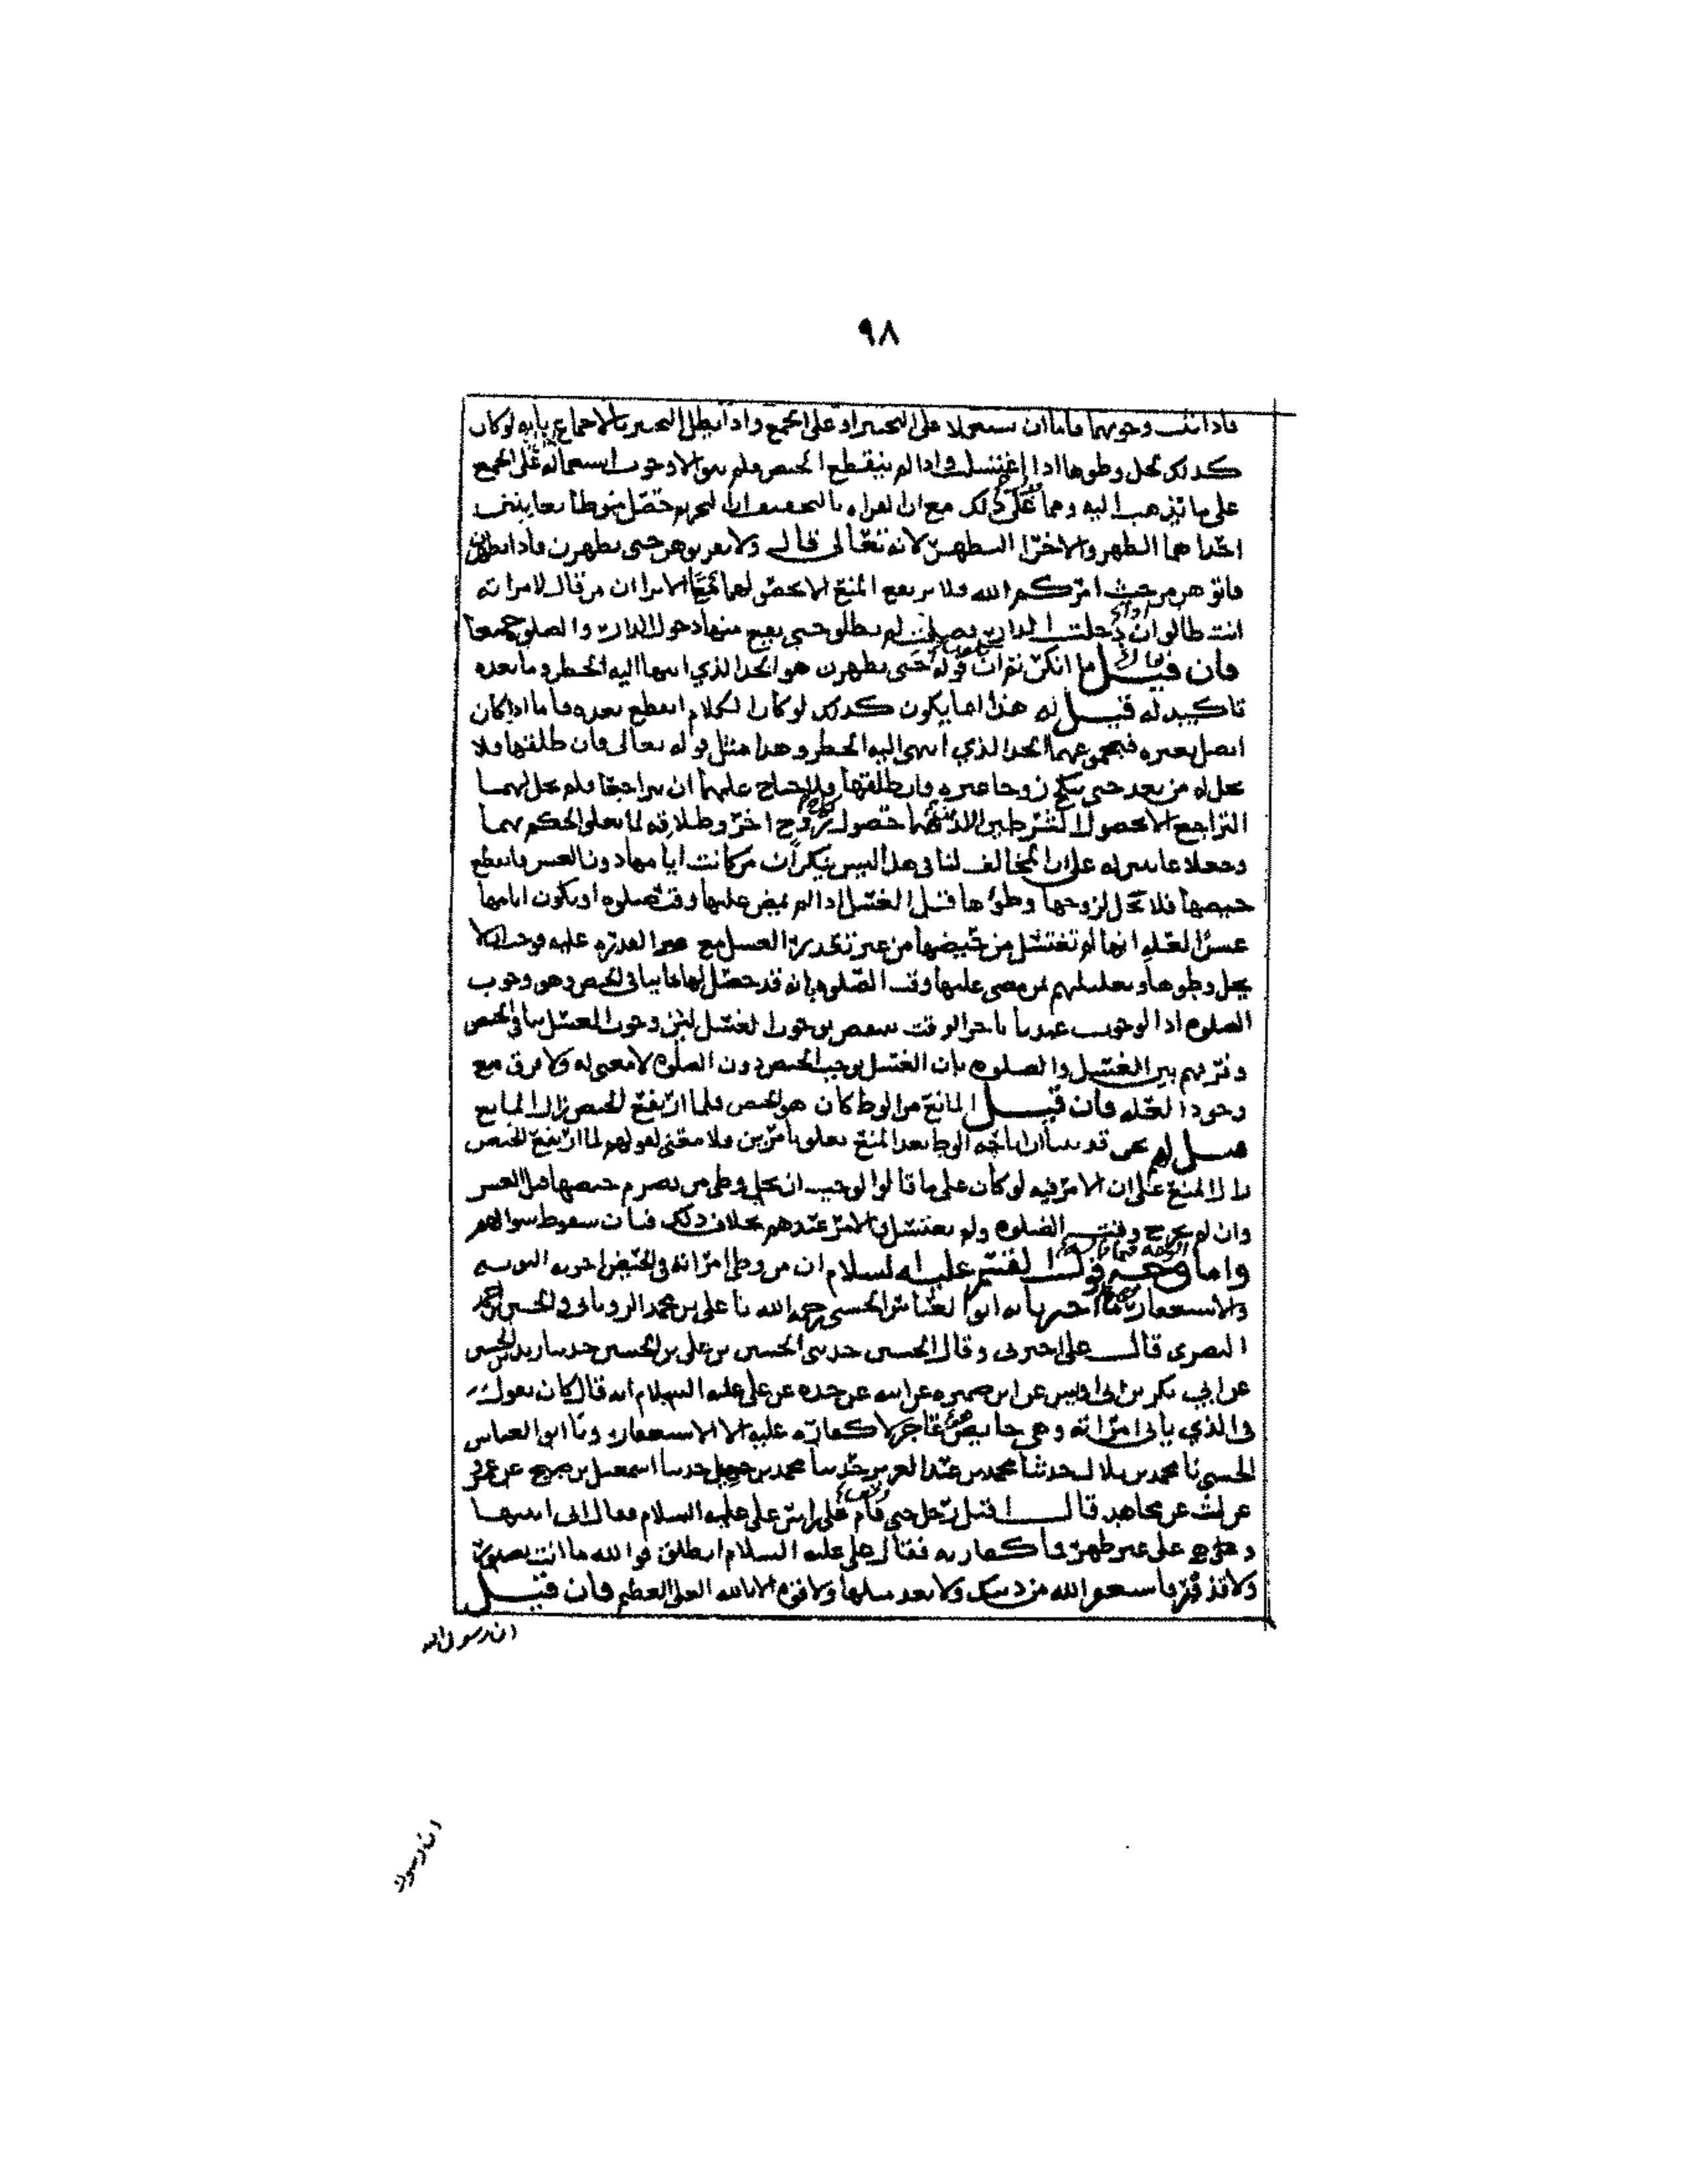 ٩٨
فاذا ثبت وجوبهما فاما ان يستعملا على التخيير او على الجمع واذا بطل التخيير بالاجماع بانه لو كان
كذلك لحل وطوها اذا اغتسلت واذا لم ينقطع الحيض فلم يبق الا وجوب استعماله على الجمع
على ما نذهب اليه ومما على ذلك مع ان القراه بالتخفيف ان التحريم حصل
احداهما الطهر والاخرى التطهر لانه تعالى قال ولا تقربوهن حتى يطهرن فاذا تطهرن
فاتوهن من حيث امركم الله فلا يرتفع المنع الا بحصولهما الا ترا ان من قال لامراته
انت طالق ان دخلت الدار لم تطلق حتى يقع منها دخول الدار والصلوه جميعا
فان قيل ما انكرتم ان قوله حتى يطهرن هو الحد الذي انتها اليه الحظر وما بعده
تاكيد له قيل له هذا انما يكون كذلك لو كان الكلام انقطع بعده فاما اذا كان
اتصل بغيره فمجموعهما الحد الذي انتهى اليه الحظر وهذا مثل قوله تعالى فان طلقها فلا
تحل له من بعد حتى تنكح زوجا غيره فان طلقها فلا جناح عليهما ان يتراجعا فلم يحل لهما
التراجع الا بحصول الشرطين اللذين هما حصول زوج اخر وطلاقه لما تعلق الحكم بهما
وجعلا غايتين له على ان المخالف لنا في هذا ليس ينكر ان من كانت ايامها دون العشر فانقطع
حيضها فلا تحل لزوجها وطؤها قبل الغسل اذا لم يمض عليها وقت صلوه او يكون ايامها
عشرا لعله انها لم تغتسل من حيضها من غير تعذر الغسل مع القدره عليه فوجب الا
يحل وطوها وتعليلهم لمن مضى عليها وقت الصلوه بانه قد حصل لها ما ينافي الحيض وهو وجوب
الصلوه اذ الوجوب عندنا باخر الوقت ينتقض بوجوب الغسل لان وجوب الغسل ينافي الحيض
وفرقهم بين الغسل والصلوه بان الغسل يوجبه الحيض دون الصلوه لا معنى له ولا فرق مع
وجود العله فان قيل المانع من الوطء كان هو الحيض فلما ارتفع الحيض زال المانع
قيل لهم نحن قد بينا ان اباحه الوطء بعد المنع تعلق بامرين فلا معنى لقولهم لما ارتفع الحيض
زال المنع على ان الامر فيه لو كان على ما قالوا لوجب ان يحل وطي من تصرم حيضها قبل العشر
وان لم يخرج وقت الصلوه ولم تغتسل لان الامر عندهم بخلاف ذلك فبان سقوط سوالهم
واما وجه قول القسم عليه السلام ان من وطئ امراته في الحيض اجزته التوبه
والاستغفار ما اخبرنا به ابو العباس الحسني رحمه الله نا علي بن محمد الروياني والحسن بن احمد
البصرى قال علي اخبرني وقال الحسن حدثنى الحسين بن علي بن الحسين حدثنا زيد بن الحسن
عن ابي بكر بن ابي اويس عن ابن ضميره عن ابيه عن جده عن علي عليه السلام انه قال كان يقول
في الذي ياتي امراته وهي حايض عاجز لا كفاره عليه الا الاستغفار ونا ابو العباس
الحسني نا محمد بن بلال حدثنا محمد بن عبد العزيز حدثنا محمد بن جبيل حدثنا اسمعيل بن صبيح عن عمرو
عن ليث عن مجاهد قال اقبل رجل حتى قام على راس علي عليه السلام فقال اني اتيتها
وهي على غير طهر فما كفارته فقال علي عليه السلام انطلق فوالله ما انت بصبور
ولا قذور فاستغفر الله من ذنبك ولا تعد لمثلها ولا قوه الا بالله العلي العظيم فان قيل
ان رسول الله
ان رسول